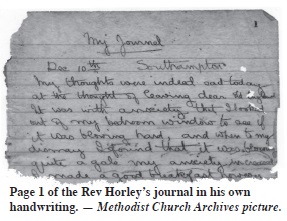 1
My Journal
Dec 10th Southampton
My thoughts were indeed sad today
at the thought of leaving dear
It was with anxiety that I looked
out of my bedroom window to see if
it was blowing hard, and when to my
dismay I found that it was blowing
quite a gale my anxiety increased
made a good breakfast
Page 1 of the Rev Horley's journal in his own
handwriting. — Methodist Church Archives picture.